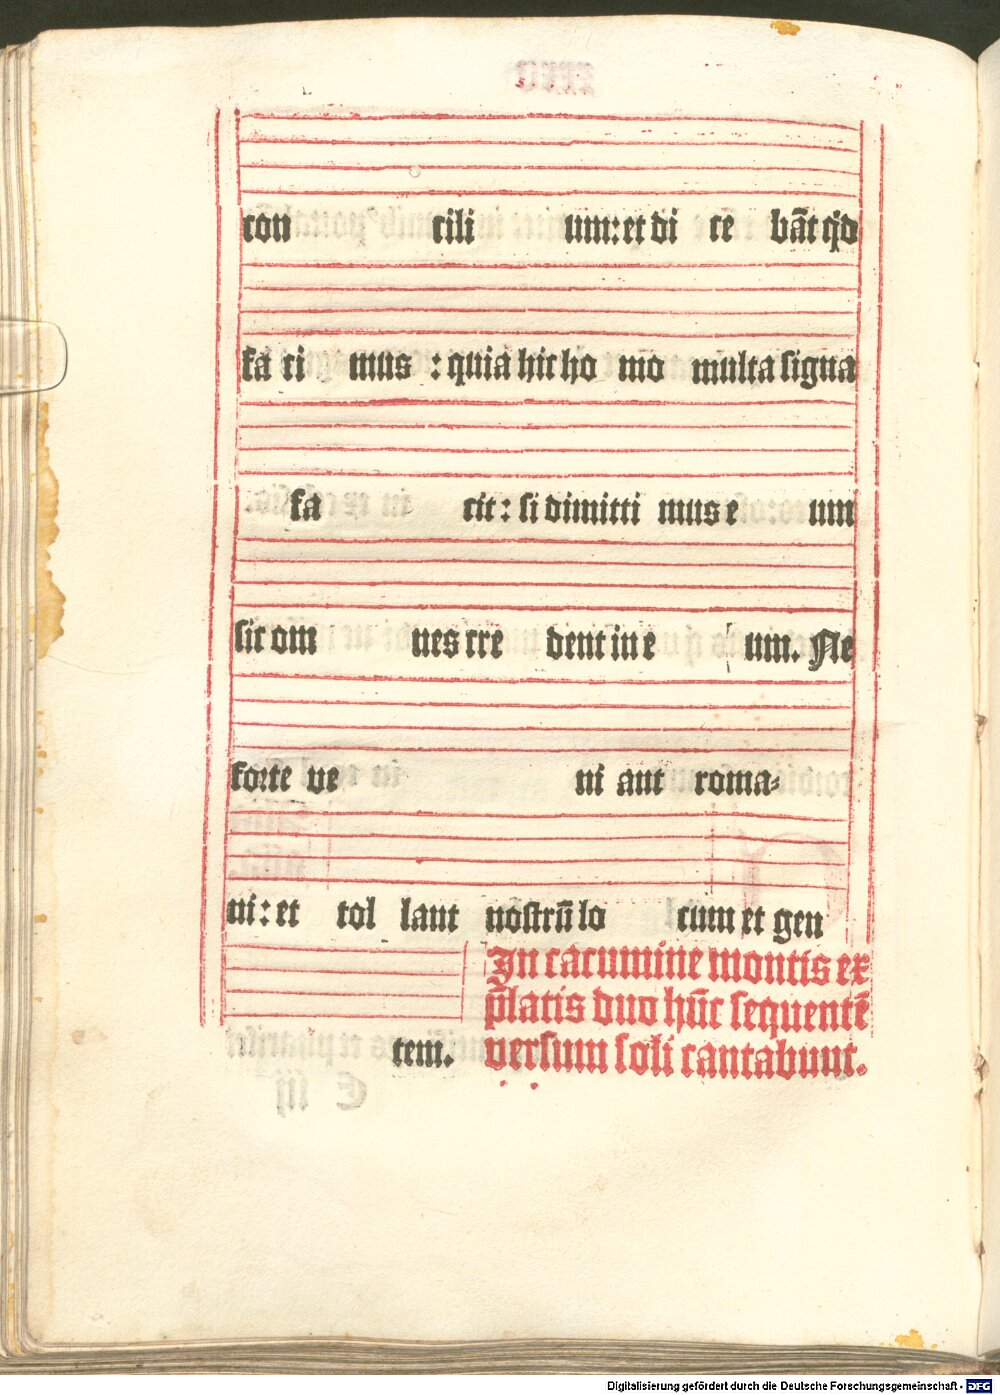 con cili um: et di ce bāt qͥd
fa ci mus : quia hic ho mo multa signa
fa cit : si dimitti mus e um
sic om nes cre dent in e um. Ne
forte ve ni ant roma⸗
ni: et tol lant nostrū lo cum et gen
In cacumine montis ex
p̄latis duo hūc sequentē
tem. versum soli cantabunt.
Digitalisierung gefördert durch die Deutsche Forschungsgemeinschaft - DFG